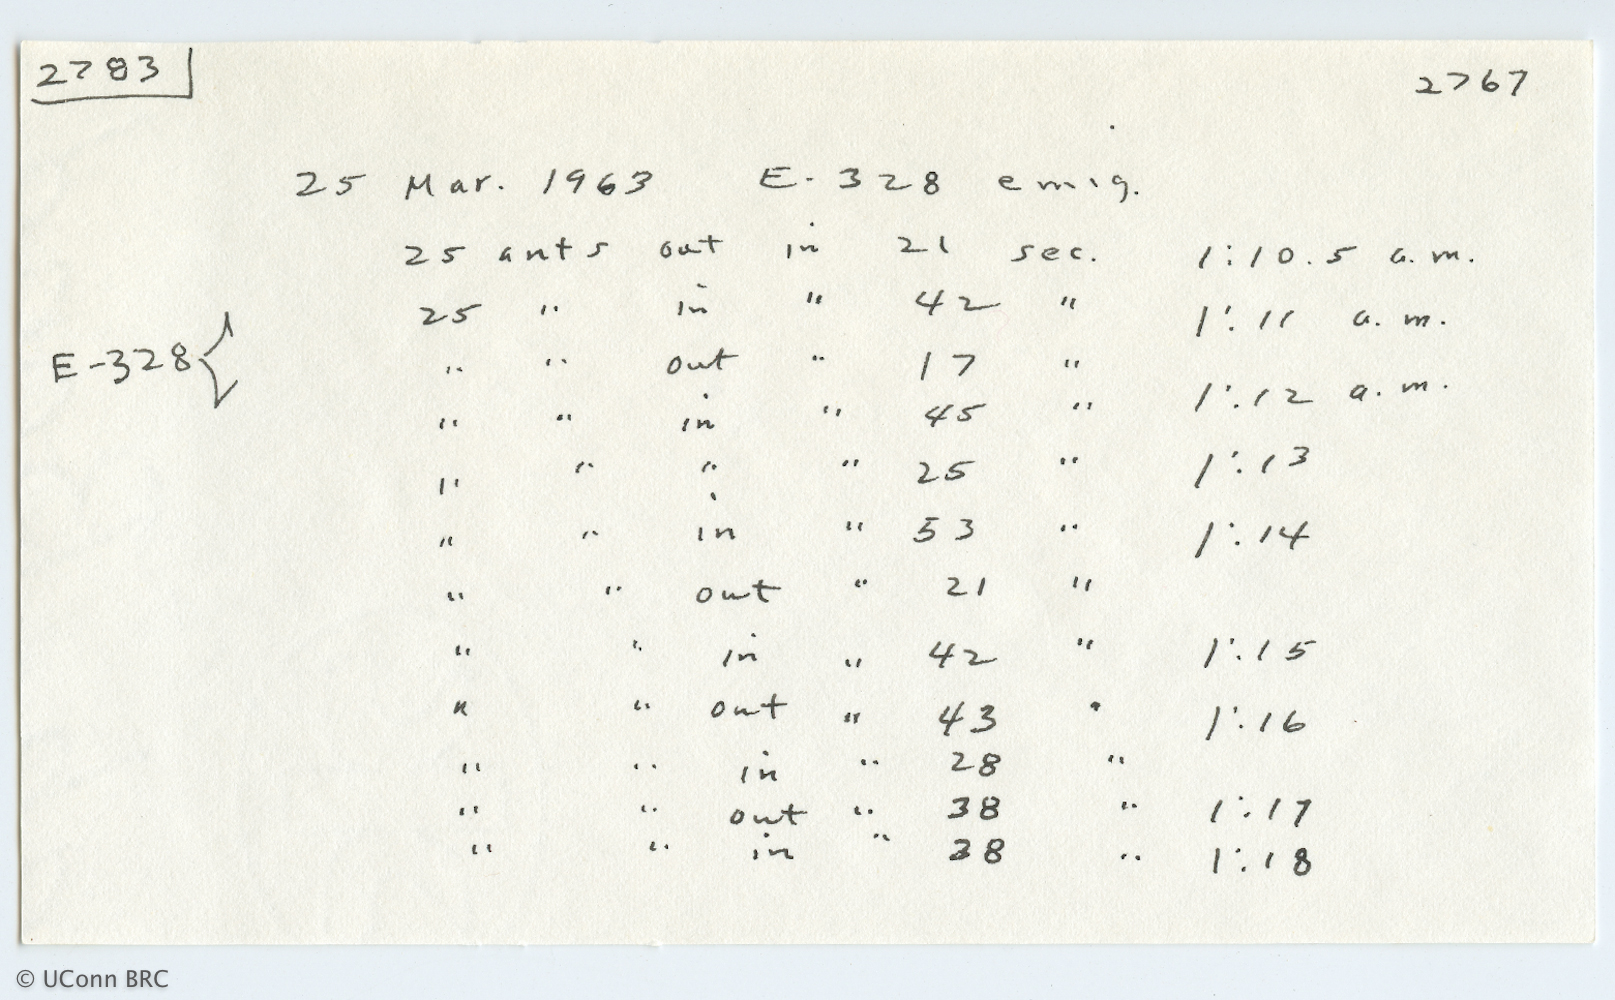 2783
2767
25 Mar. 1963 E-328 emig.
25 ants out in 21 sec. 1:10.5 a.m.
25 " in " 42 " 1:11 a.m.
E-328 {
" " out " 17 "
" " in " 45 " 1:12 a.m.
" " " " 25 " 1:13
" " in " 53 " 1:14
" " out " 21 "
" " in " 42 " 1:15
" " out " 43 " 1:16
" " in " 28 "
" " out " 38 " 1:17
" " in " 38 " 1:18
© UConn BRC